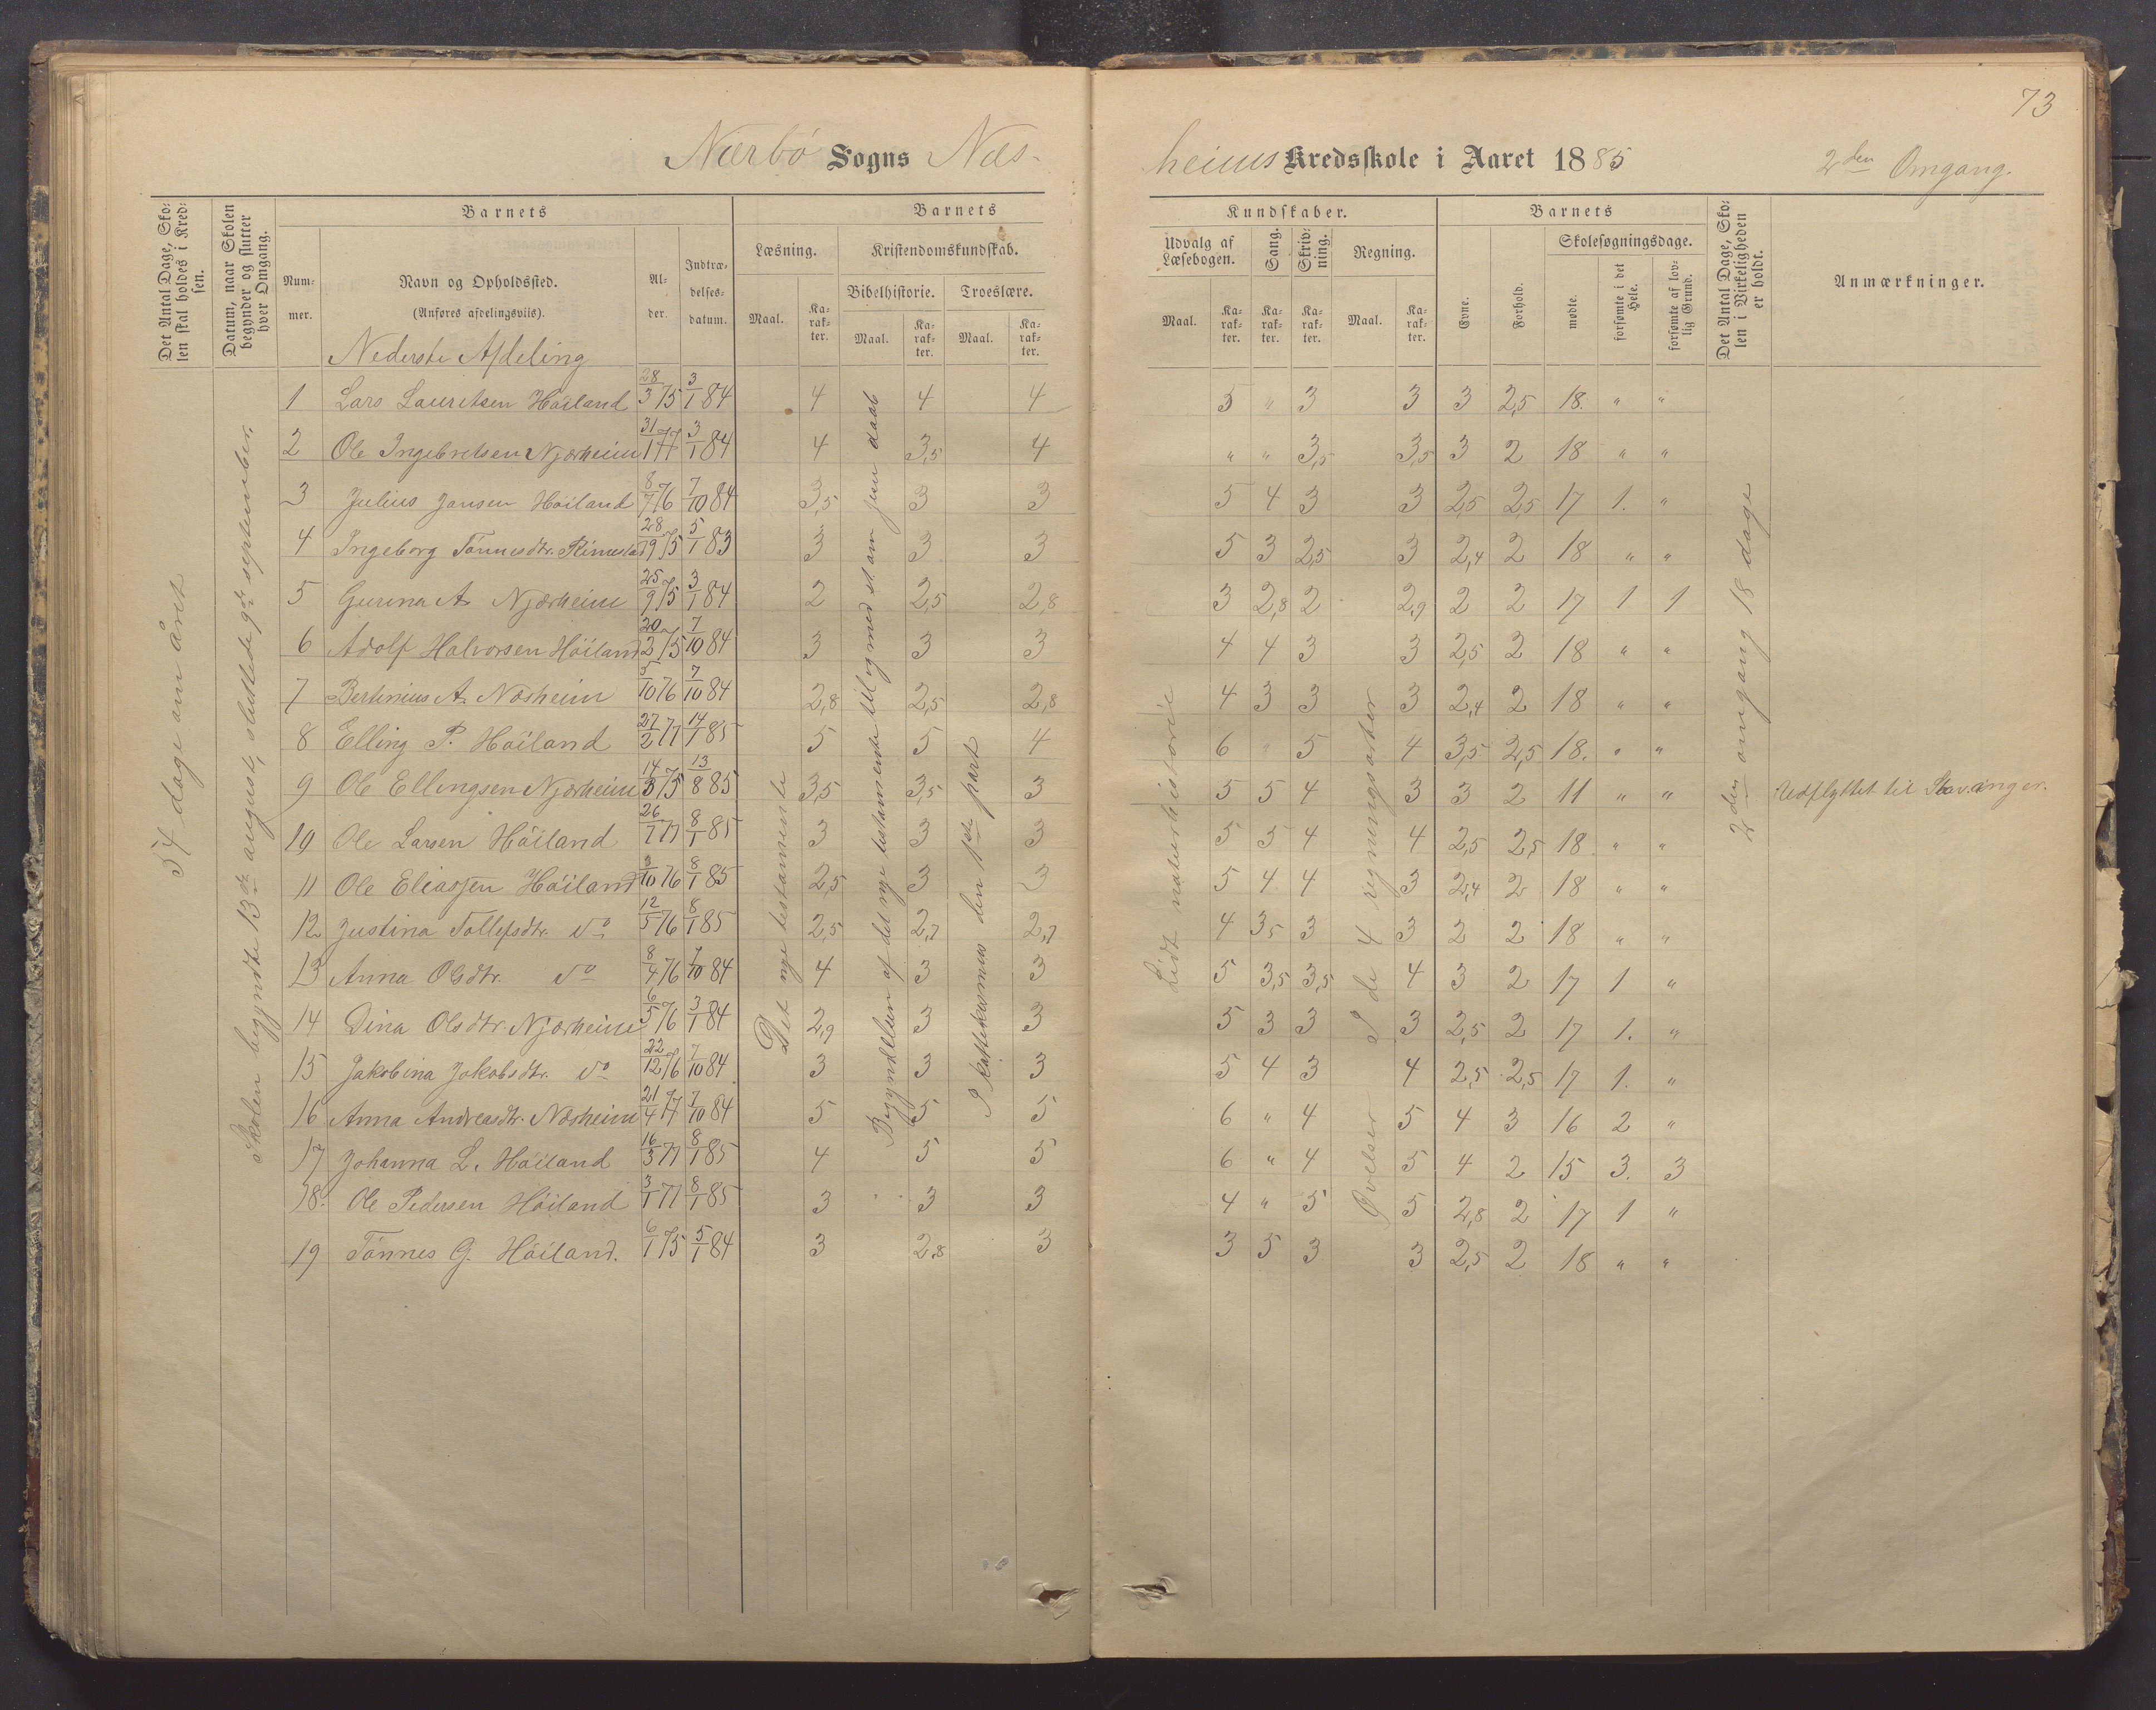 73
Nærbø Sogns Næs-
heims Kredsskole i Aaret 1885 2den Omgang.
Det Antal Dage, Skolen skal holdes i Kredsen.
Datum, naar Skolen begynder og slutter hver Omgang.
Barnets
Nummer.
Navn og Opholdssted.
(Anføres afdelingsviis).
Alder.
Indtrædelsesdatum.
Barnets
Læsning.
Kristendomskundskab.
Bibelhistorie. Troeslære.
Maal. Karakter. Maal. Karakter. Maal. Karakter.
Kundskaber.
Udvalg af Læsebogen. Sang. Skrivning. Regning.
Maal. Karakter. Karakter. Karakter. Maal. Karakter.
Barnets
Evne. Forhold. Skolesøgningsdage.
mødte. forsømte i det Hele. forsømte af lovlig Grund.
Det Antal Dage, Skolen i Virkeligheden er holdt.
Anmærkninger.
Nederste Afdeling
1 Lars Lauritsen Høiland 28/3 75 3/1 84 4 4 4 5 " 3 3 3 2,5 18. " "
2 Ole Ingebretsen Njærheim 31/1 77 3/1 84 4 3,5 4 " " 3,5 3,5 3 2 18 " "
3 Julius Jansen Høiland 8/7 76 7/10 84 3,5 3 3 5 4 3 3 2,5 2,5 17 1. "
4 Ingeborg Tønnesdtr. Rimestad 28/9 75 5/1 83 3 3 3 5 3 2,5 3 2,4 2 18 " "
5 Gurina A. Njærheim 25/9 75 3/1 84 2 2,5 2,8 3 2,8 2 2,9 2 2 17 1 1
6 Adolf Halvorsen Høiland 20/3 75 7/10 84 3 3 3 4 4 3 3 2,5 2 18 " "
7 Bertinius A. Næsheim 5/10 76 7/10 84 2,8 2,5 2,8 4 3 3 3 2,4 2 18 " "
8 Elling P. Høiland 27/2 77 14/1 85 5 5 4 6 " 5 4 3,5 2,5 18. " "
9 Ole Ellingsen Njærheim 14/3 75 13/8 85 3,5 3,5 3 5 5 4 3 3 2 11 " " Udflyttet til Stavanger.
10 Ole Larsen Høiland 26/7 77 8/1 85 3 3 3 5 5 4 4 2,5 2,5 18 " "
11 Ole Eliassen Høiland 3/10 76 8/1 85 2,5 3 3 5 4 4 3 2,4 2 18 " "
12 Justina Tollefsdtr. do 12/5 76 8/1 85 2,5 2,7 2,7 4 3,5 3 3 2 2 18 " "
13 Anna Olsdtr. do 8/4 76 7/10 84 4 3 3 5 3,5 3,5 4 3 2 17 1 "
14 Dina Olsdtr Njærheim 6/5 76 3/1 84 2,9 3 3 5 3 3 3 2,5 2 17 1. "
15 Jakobina Jakobsdtr. do 22/12 76 7/10 84 3 3 3 5 4 3 4 2,5 2,5 17 1. "
16 Anna Andreasdtr. Næsheim 21/4 77 7/10 84 5 5 5 6 " 4 5 4 3 16 2 "
17 Johanna L. Høiland 16/3 77 8/1 85 4 5 5 6 " 4 5 4 2 15 3. 3
18. Ole Pedersen Høiland 3/1 77 8/1 85 3 3 3 4 " 5 5 2,8 2 17 1 "
19 Tønnes G. Høiland. 6/1 75 5/1 84 3 2,8 3 3 5 3 3 2,5 2 18 " "
54 dage om året
Skolen begyndte 13de august, sluttede 9de september.
Det nye testamente
Begyndelsen af det nye testamente til og med st. om Jesu daab
I katekismus den 1ste part
Lidt naturhistorie
Øvelser I de 4 regningsarter
2den omgang 18 dage